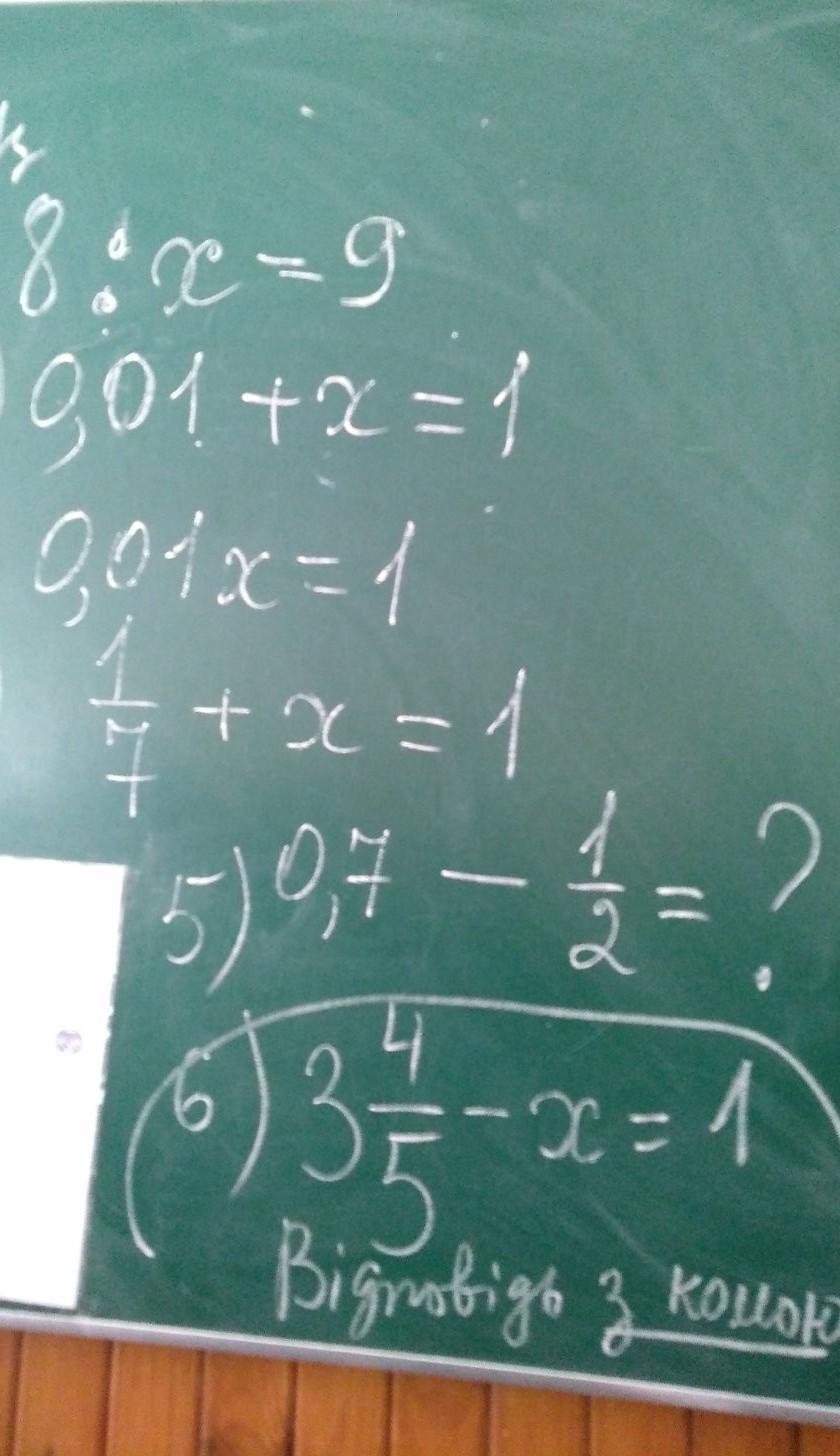 8 : x = 9
0,01 + x = 1
0,01x = 1
1/7 + x = 1
5) 0,7 - 1/2 = ?
6) 3 4/5 - x = 1
Відповідь з комою